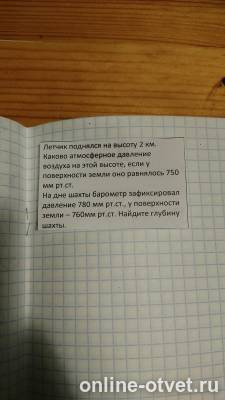 Летчик поднялся на высоту 2 км.
Каково атмосферное давление
воздуха на этой высоте, если у
поверхности земли оно равнялось 750
мм рт.ст.
На дне шахты барометр зафиксировал
давление 780 мм рт.ст., у поверхности
земли – 760мм рт.ст. Найдите глубину
шахты.
online-otvet.ru